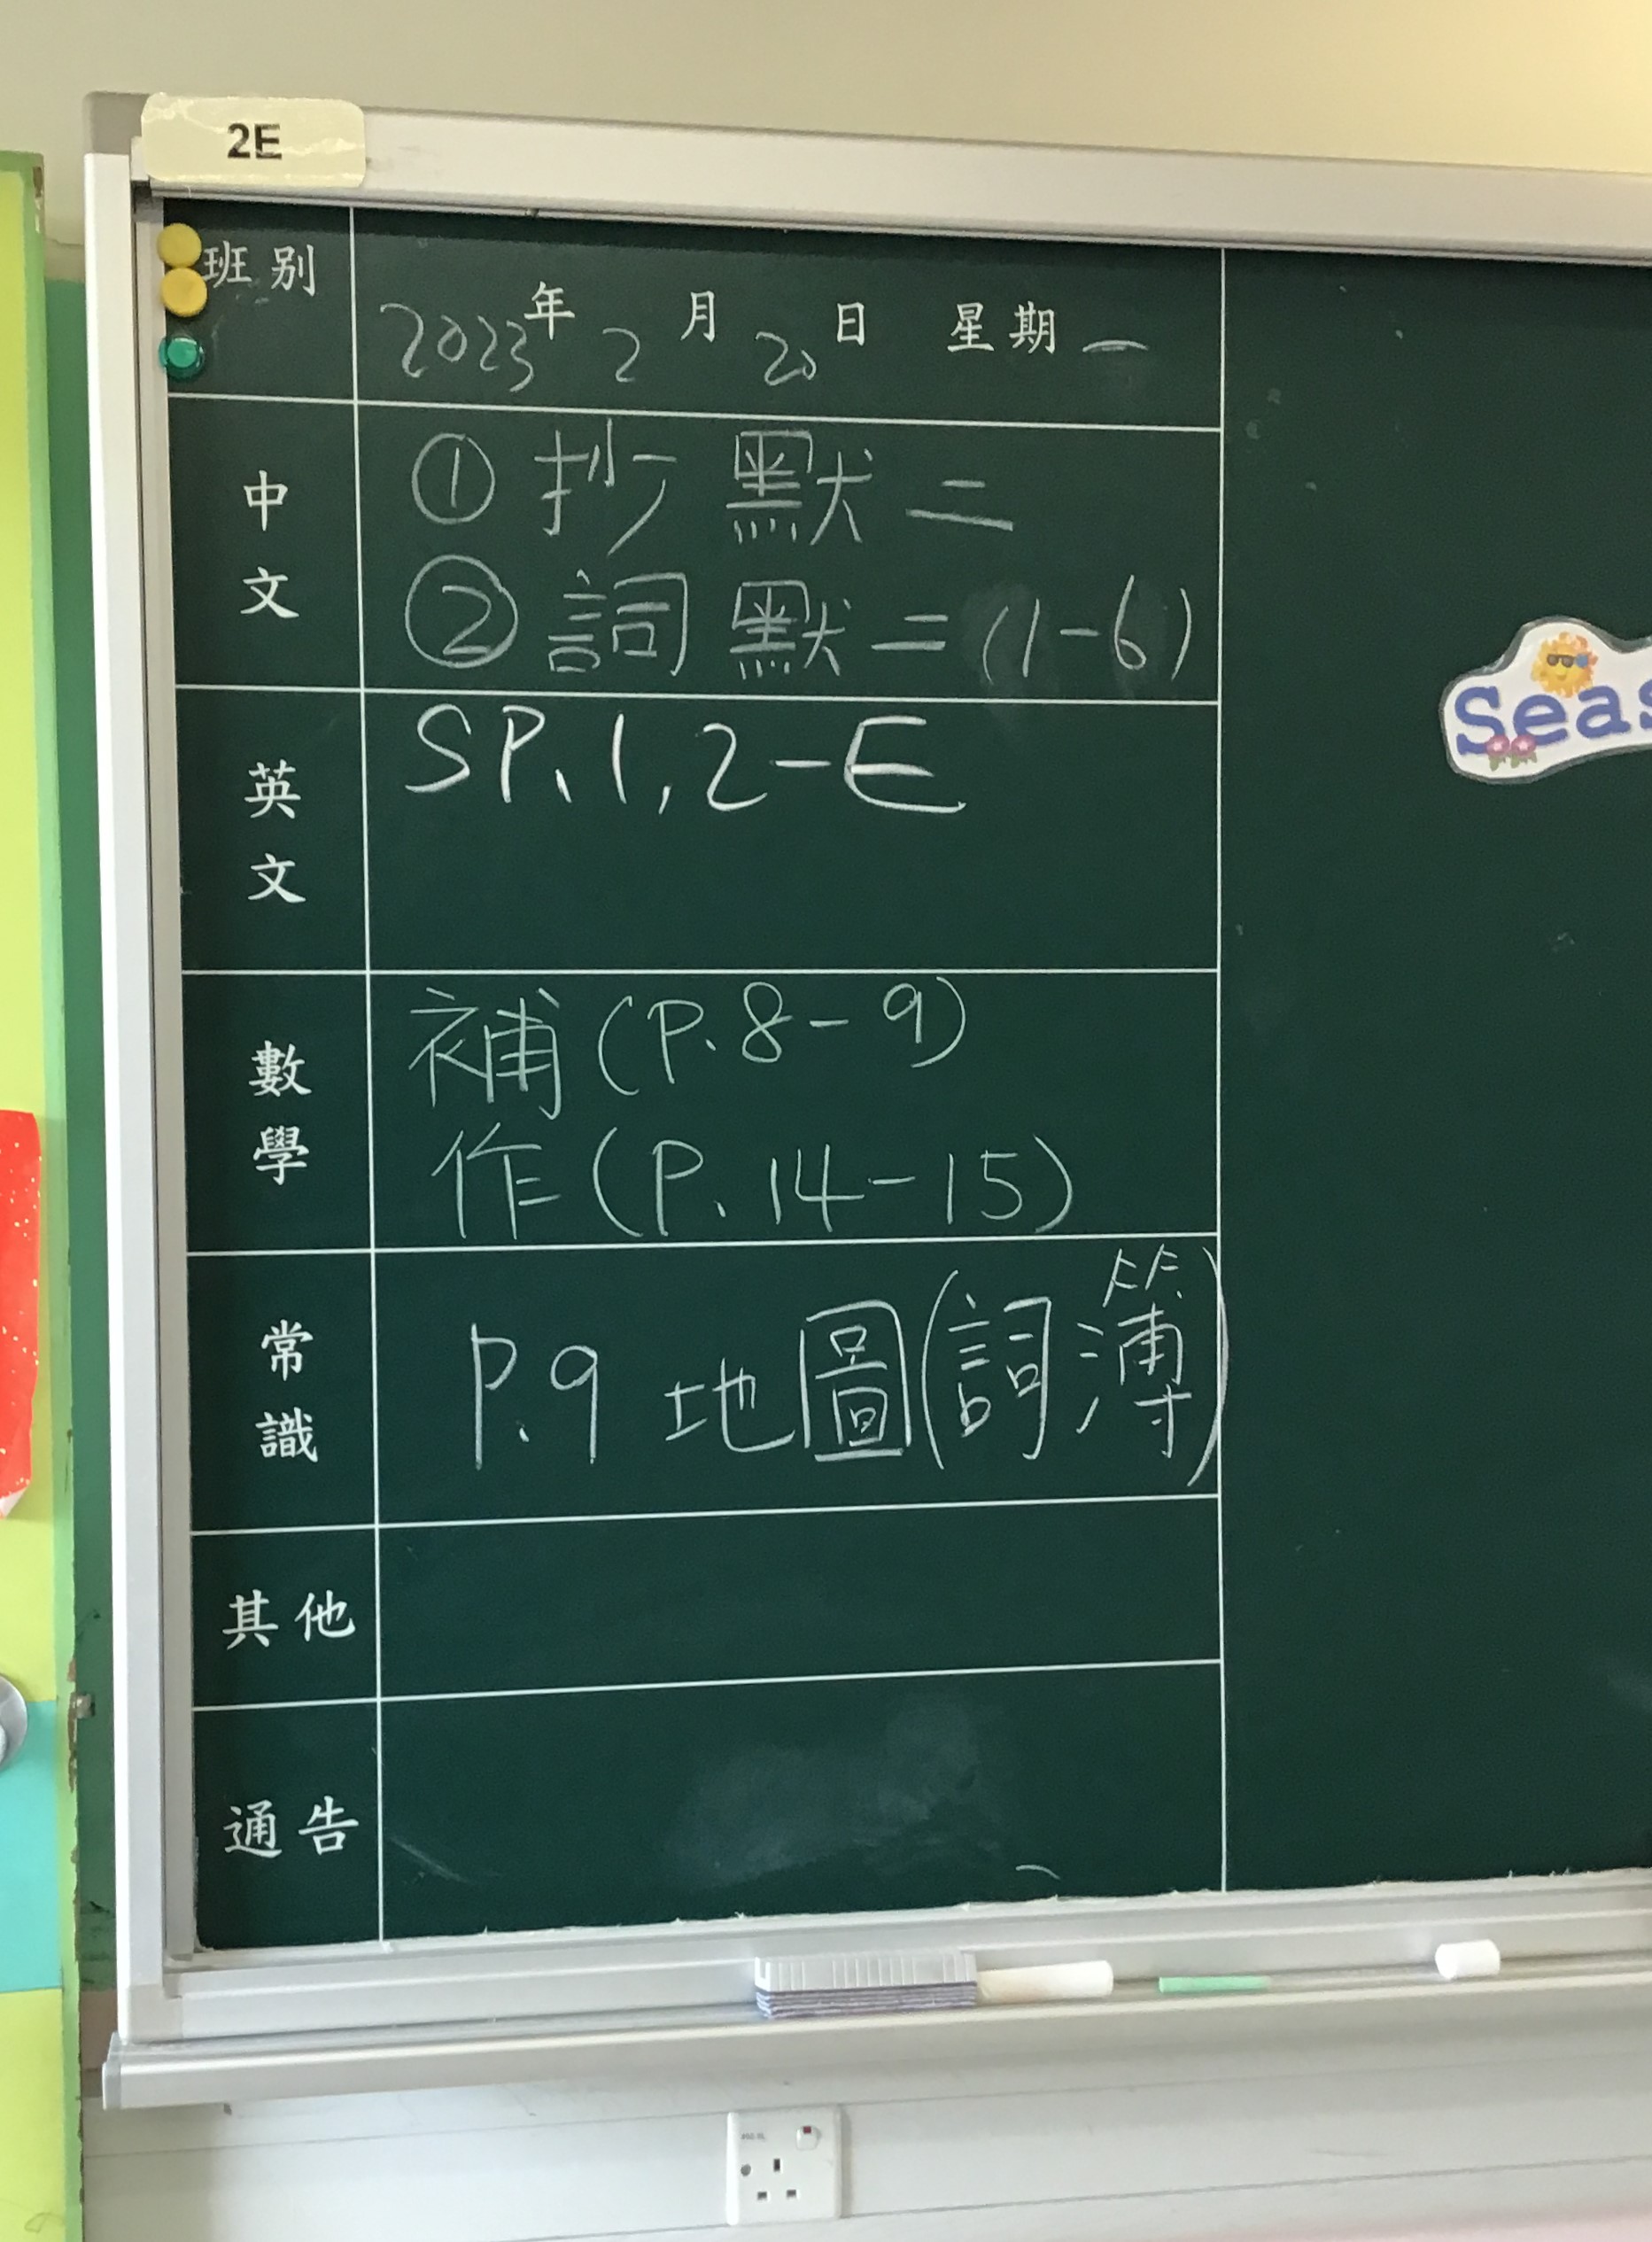 2E
班別
2023年2月20日 星期一
中文
① 抄默二
② 詞默二(1-6)
英文
SP.1,2-E
數學
補(P.8-9)
作(P.14-15)
常識
P.9 地圖(詞簿)
其他
通告
Seas